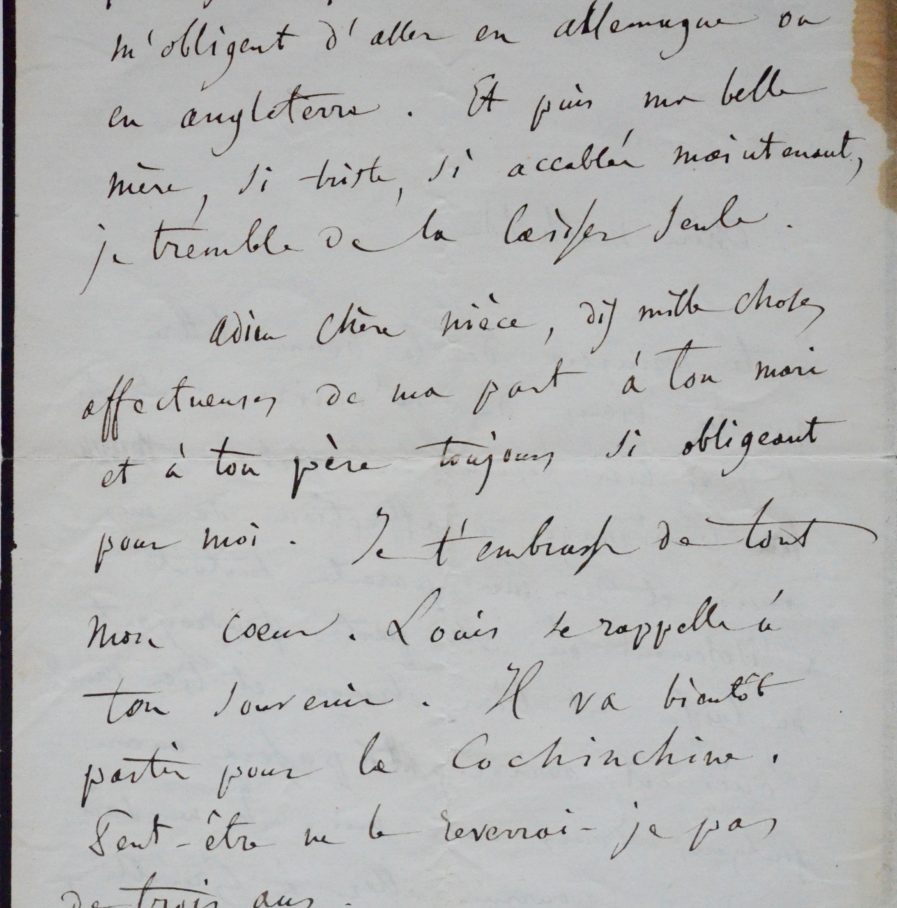 m'obligent d'aller en allemagne ou
en angleterre. Et puis ma belle
mère, si triste, si accablée maintenant,
je tremble de la laisser seule.
Adieu chère nièce, dis mille choses
affectueuses de ma part à ton mari
et à ton père toujours si obligeant
pour moi. Je t'embrasse de tout
mon coeur. Louis se rappelle à
ton souvenir. Il va bientôt
partir pour la Cochinchine.
Peut-être ne le reverrai-je pas
de trois ans.